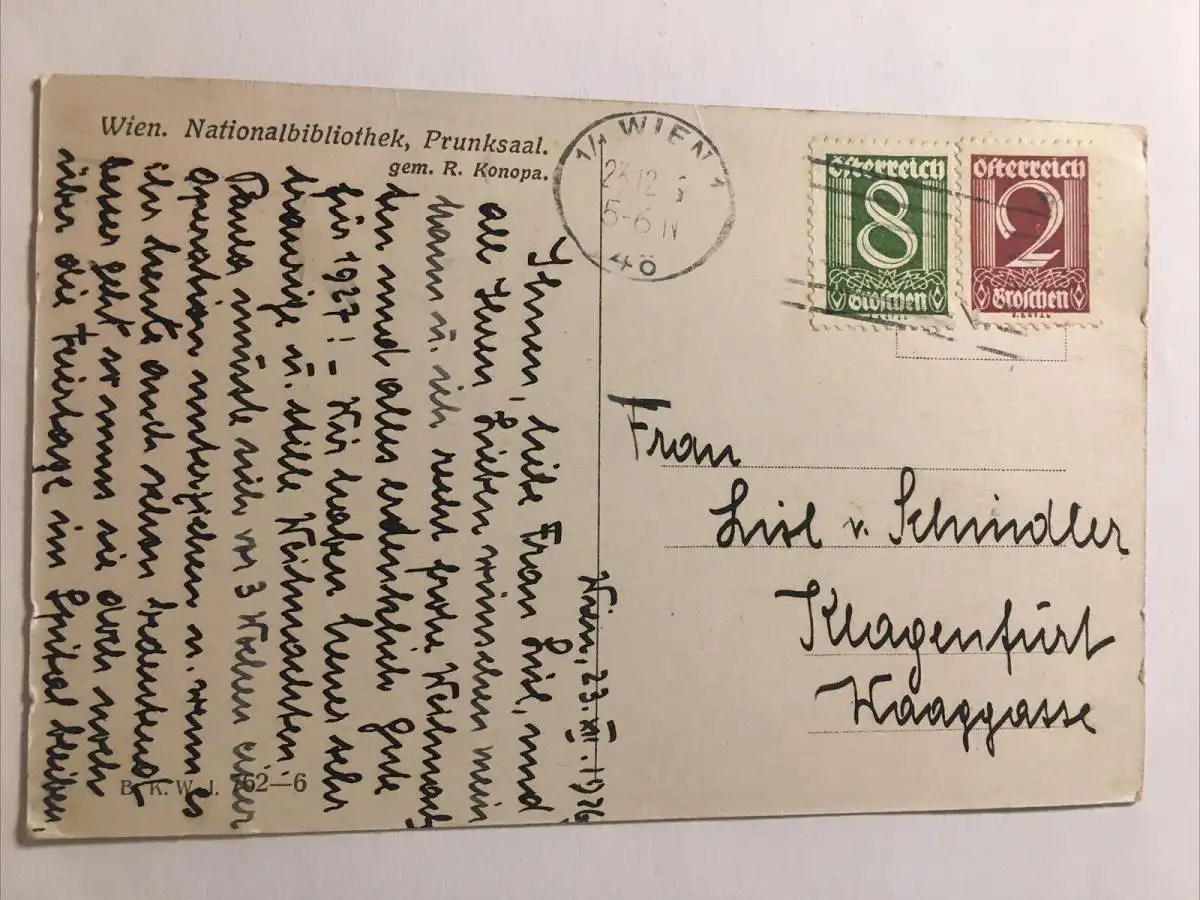 Wien. Nationalbibliothek, Prunksaal.
gem. R. Konopa.
1/1 WIEN 1
23.12
5-6 N
4ö
Österreich
8
Groschen
Österreich
2
Groschen
Wien, 23. XII. 1926
Ihnen, liebe Frau Lisl, und
all Ihren Lieben wünschen mein
Mann u. ich recht frohe Weihnach
ten und alles erdenklich Gute
für 1927! – Wir haben heuer sehr
traurige u. stille Weihnachten.
Paula mußte sich vor 3 Wochen einer
Operation unterziehen u. wenn es
ihr heute auch schon bedeutend
besser geht so muss sie doch noch
über die Feiertage im Spital bleiben.
Frau
Lisl v. Schindler
Klagenfurt
Waaggasse
B. K. W. I. 762—6